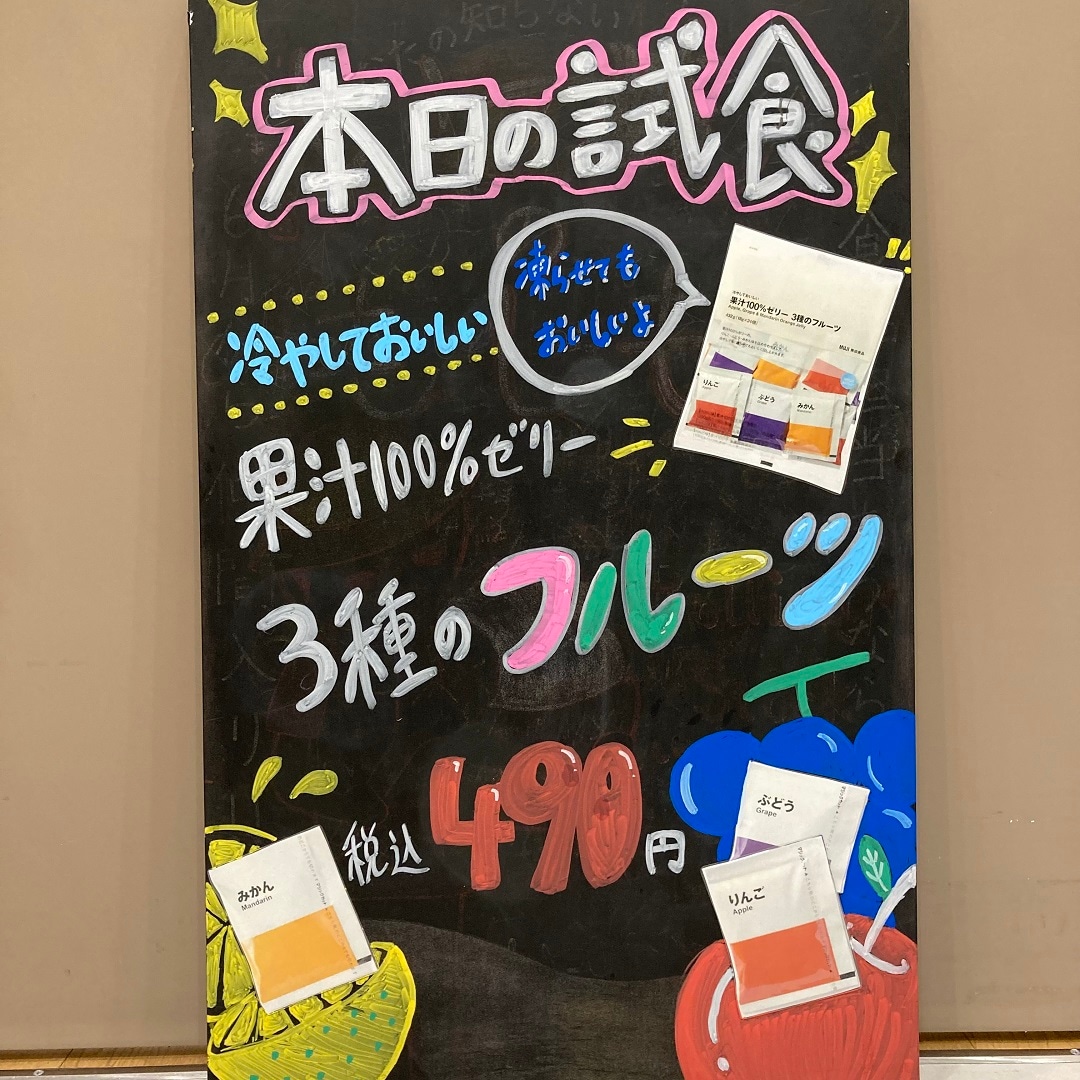 本日の試食
凍らせても
おいしいよ
冷やしておいしい
冷やしておいしい
果汁100%ゼリー 3種のフルーツ
Apple, Grape & Mandarin Orange Jelly
MUJI 無印良品
りんご
Apple
ぶどう
Grape
みかん
Mandarin
果汁100%ゼリー
3種のフルーツ
税込490円
ぶどう
Grape
みかん
Mandarin
りんご
Apple